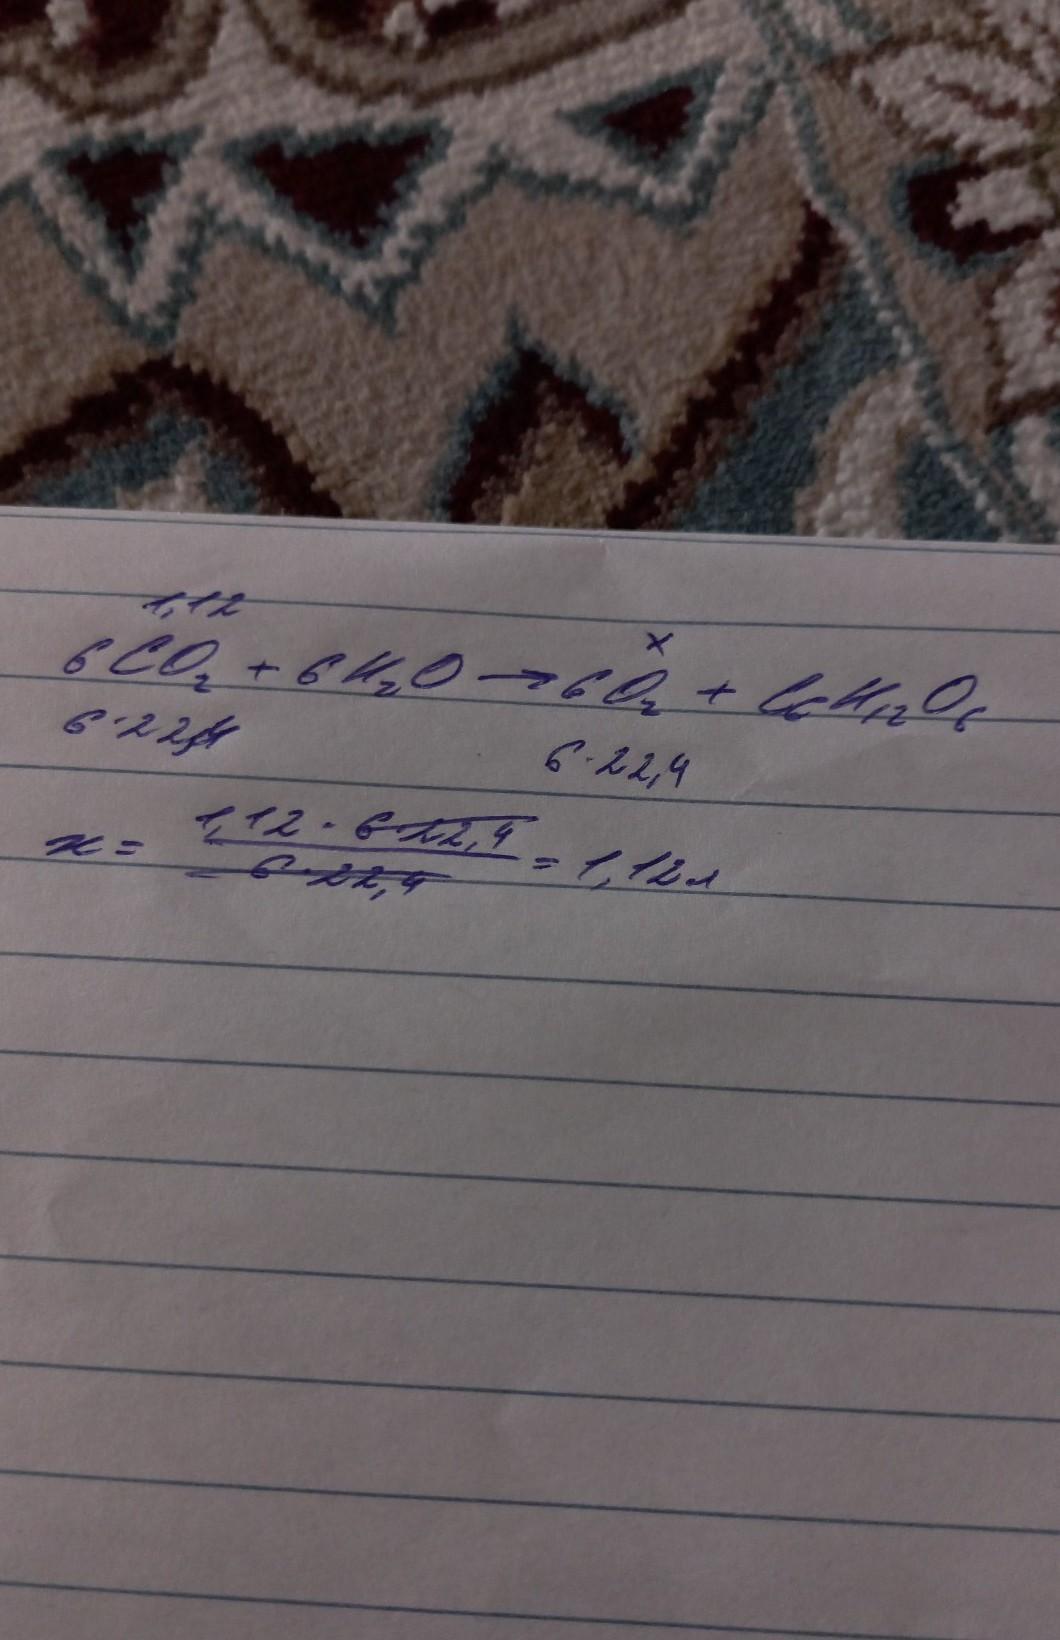 1,12
x
6CO₂ + 6H₂O → 6O₂ + C₆H₁₂O₆
6·22,4
6·22,4
x = 1,12 · 6 22,4 / 6·22,4 = 1,12л